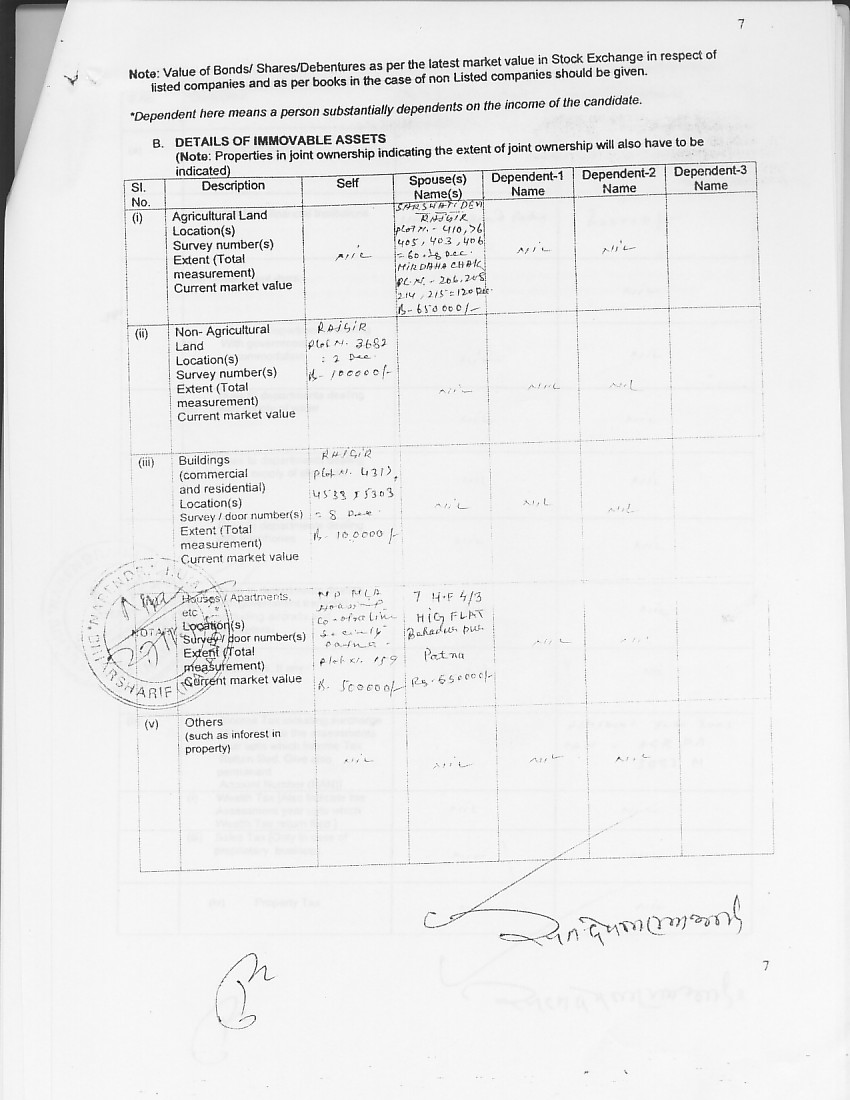 7
Note: Value of Bonds/ Shares/Debentures as per the latest market value in Stock Exchange in respect of
listed companies and as per books in the case of non Listed companies should be given.
*Dependent here means a person substantially dependents on the income of the candidate.
B. DETAILS OF IMMOVABLE ASSETS
(Note: Properties in joint ownership indicating the extent of joint ownership will also have to be
indicated)
Sl. No. Description Self Spouse(s) Name(s) Dependent-1 Name Dependent-2 Name Dependent-3 Name
(i)
Agricultural Land
Location(s)
Survey number(s)
Extent (Total
measurement)
Current market value
Nil
RAJGIR
Plot N. - 410, 76
405, 403, 406
MIRDAHA CHAK
PL. N. - 206, 208
214, 215 = 120 Dec.
Rs - 650000/-
Nil
Nil
(ii)
Non- Agricultural
Land
Location(s)
Survey number(s)
Extent (Total
measurement)
Current market value
RAJGIR
Plot N. 3682
: 2 Dec.
Rs - 100000/-
Nil
Nil
Nil
(iii)
Buildings
(commercial
and residential)
Location(s)
Survey / door number(s)
Extent (Total
measurement)
Current market value
RAJGIR
Plot N.
= 8 Dec.
Nil
Nil
Nil
NOTARY
Houses / Apartments,
etc
Location(s)
Survey / door number(s)
Extent (Total
measurement)
Current market value
Plot N. 159
Rs. 500000/-
7 H.F 4/3
HIG FLAT
Bahadur pur
Patna
Rs. 550000/-
Nil
Nil
(v)
Others
(such as inforest in
property)
Nil
Nil
Nil
Nil
7